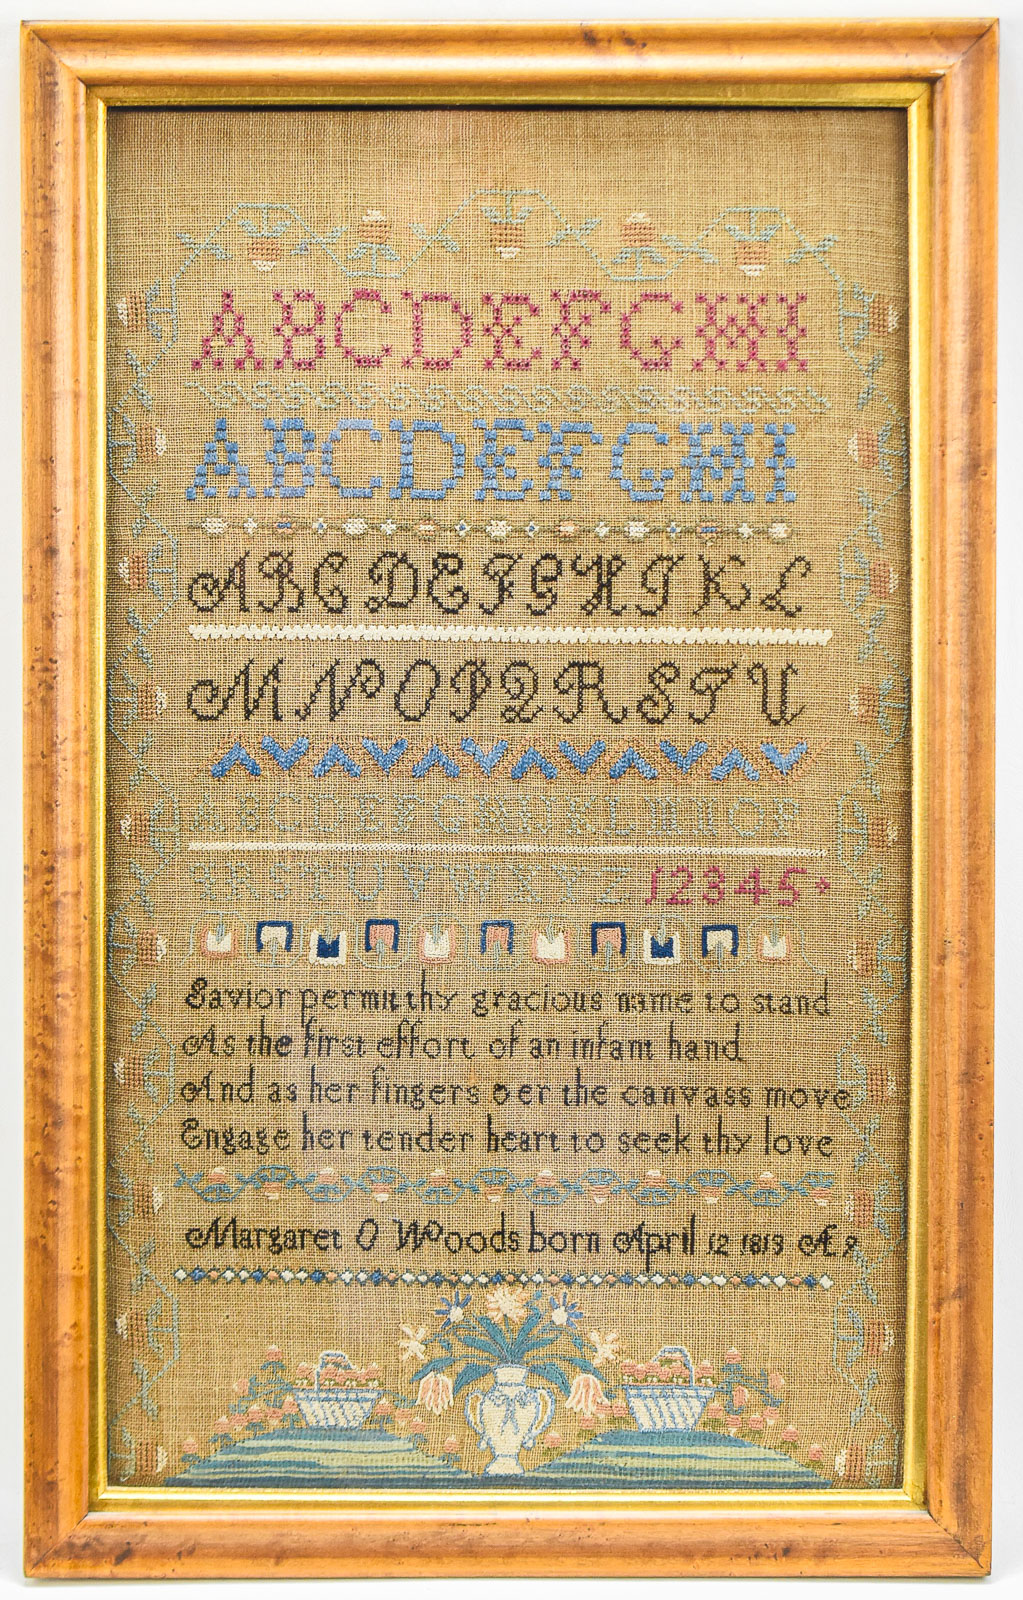 ABCDEFGHI
ABCDEFGHI
ABCDEFGHIKL
MNOPQRSTU
ABCDEFGHIJKLMNOP
QRSTUVWXYZ 12345
Savior permit thy gracious name to stand
As the first effort of an infant hand
And as her fingers oer the canvass move
Engage her tender heart to seek thy love
Margaret O Woods born April 12 1813 Æ 9